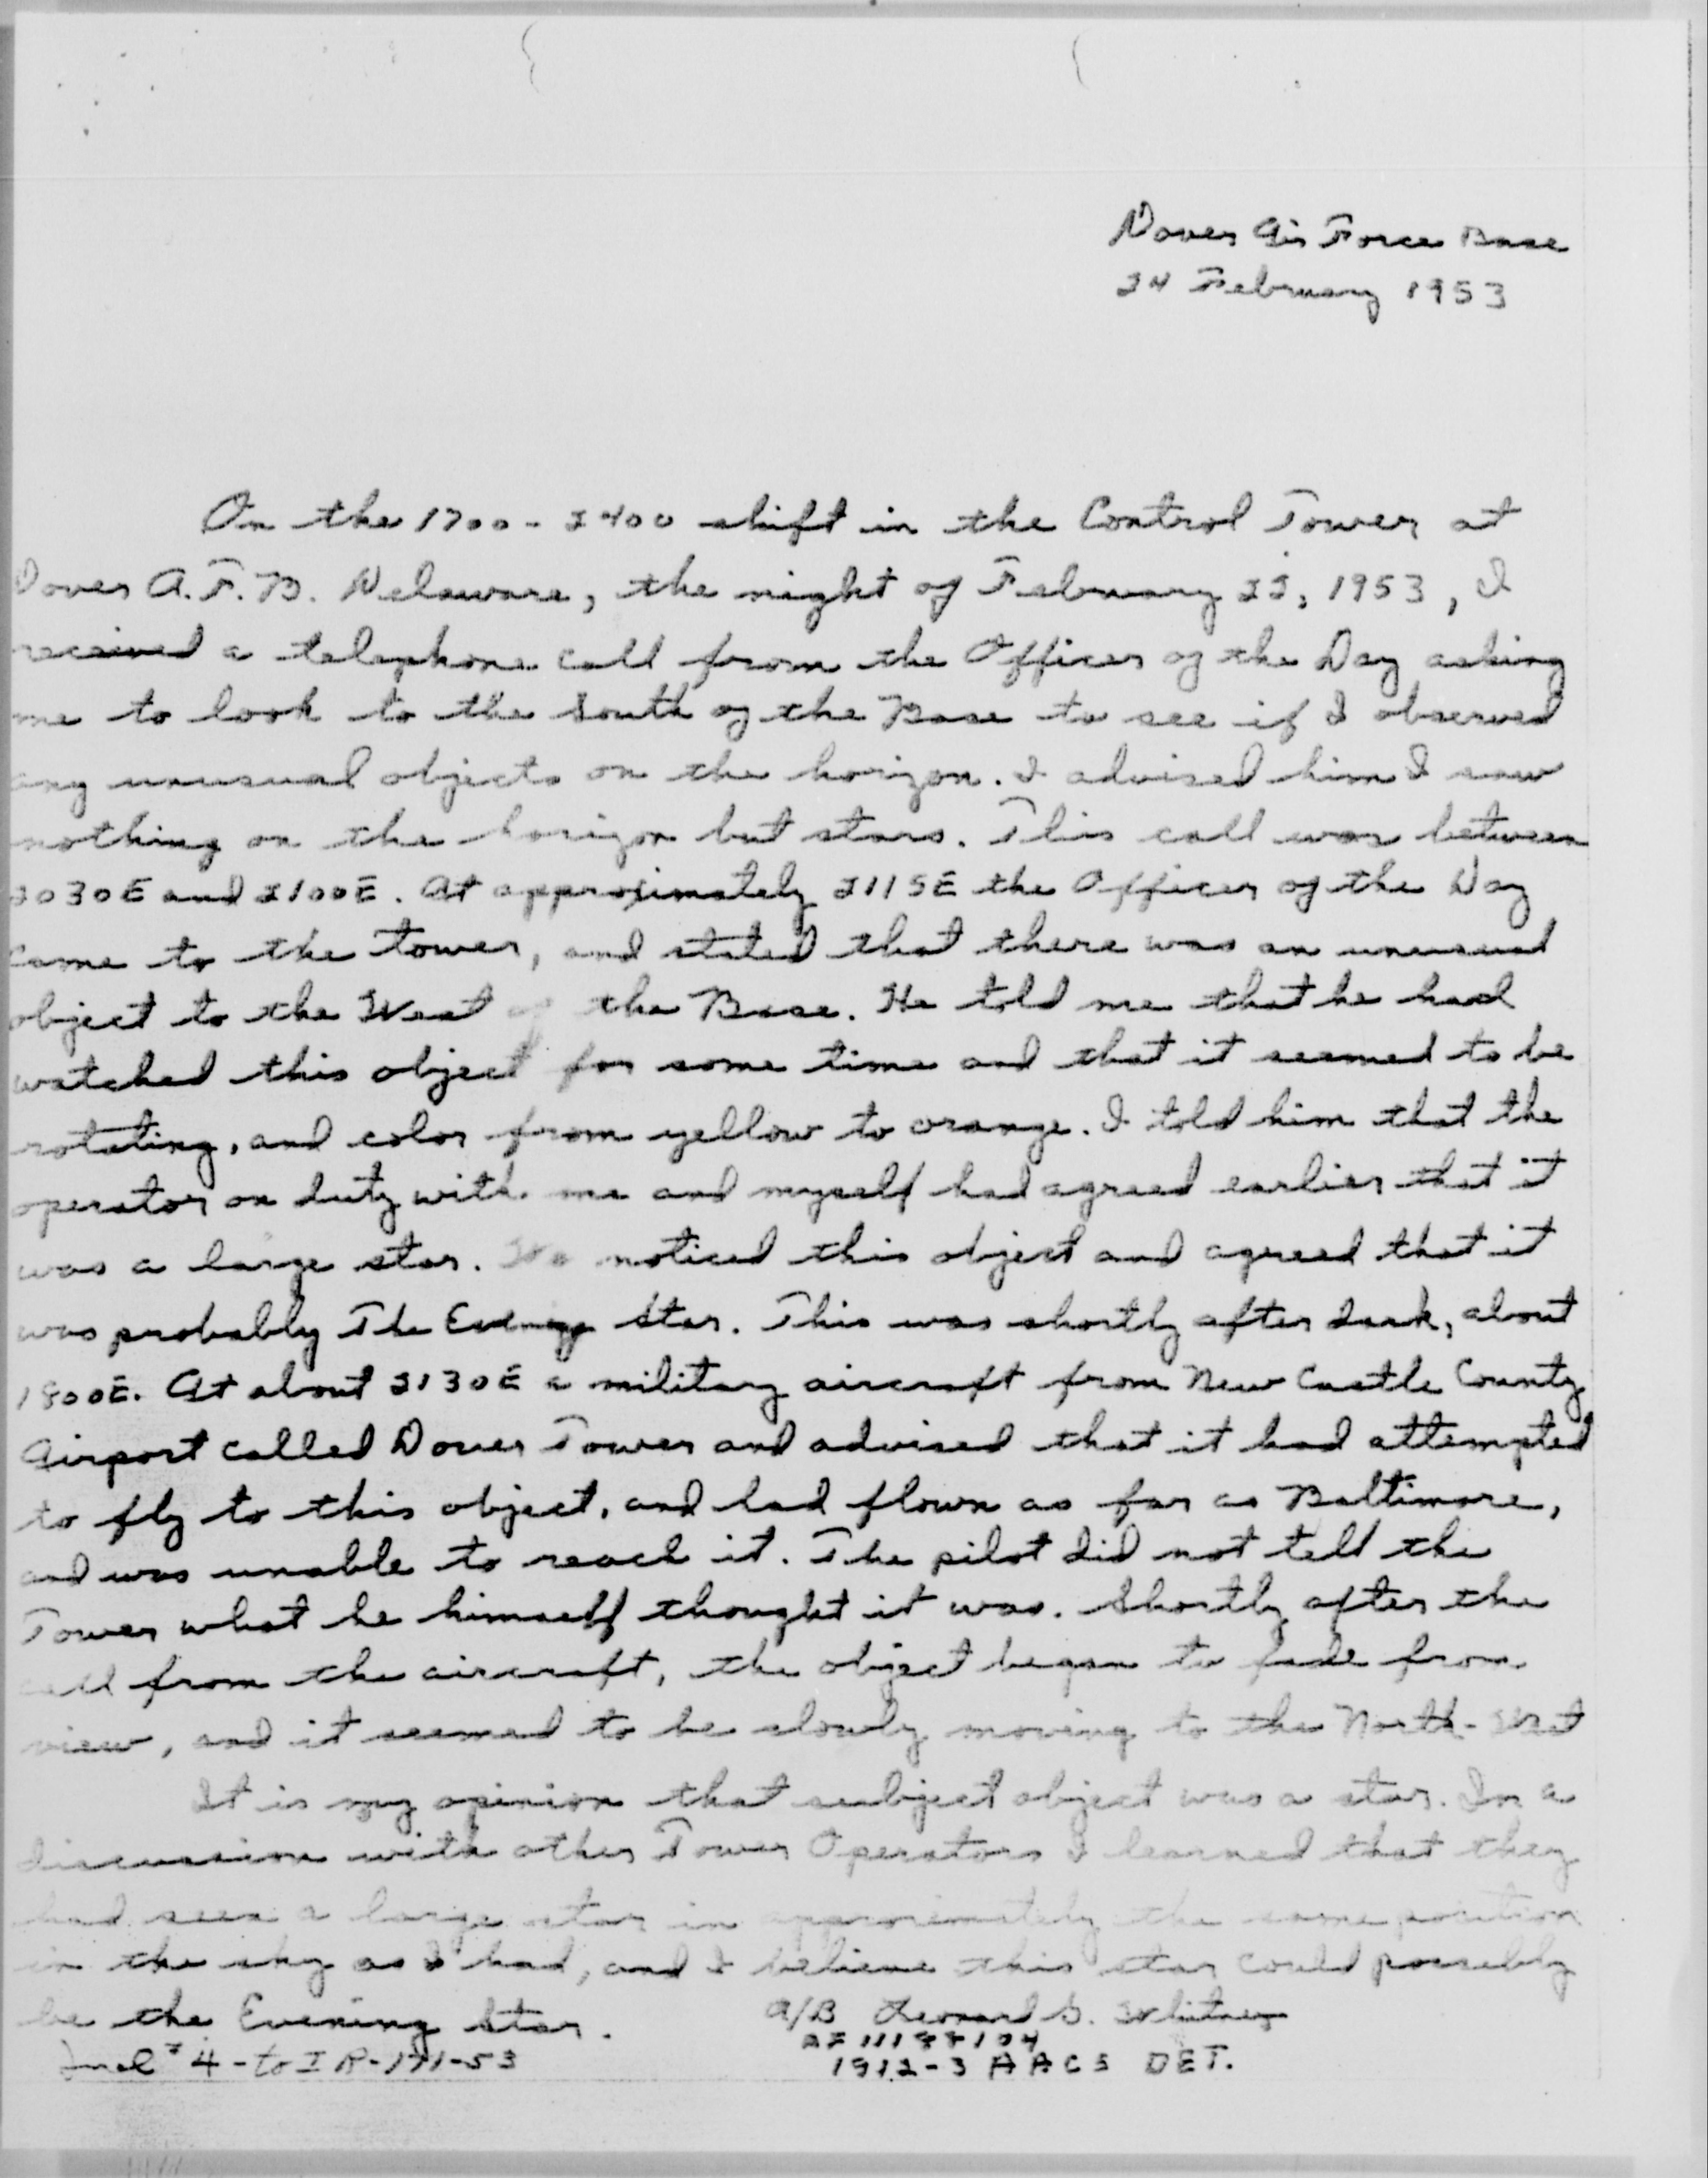 Dover Air Force Base
24 February 1953
On the 1700 - 2400 shift in the Control Tower at
Dover A.F.B. Delaware, the night of February 22, 1953, I
received a telephone call from the Officer of the Day asking
me to look to the South of the Base to see if I observed
any unusual objects on the horizon. I advised him I saw
nothing on the horizon but stars. This call was between
2030E and 2100E. At approximately 2115E the Officer of the Day
came to the tower, and stated that there was an unusual
object to the West of the Base. He told me that he had
watched this object for some time and that it seemed to be
rotating, and color from yellow to orange. I told him that the
operator on duty with me and myself had agreed earlier that it
was a large star. We noticed this object and agreed that it
was probably The Evening Star. This was shortly after dark, about
1800E. At about 2130E a military aircraft from New Castle County
Airport called Dover Tower and advised that it had attempted
to fly to this object, and had flown as far as Baltimore,
and was unable to reach it. The pilot did not tell the
Tower what he himself thought it was. Shortly after the
call from the aircraft, the object began to fade from
view, and it seemed to be slowly moving to the North-West
It is my opinion that subject object was a star. In a
discussion with other Tower Operators I learned that they
had seen a large star in approximately the same position
in the sky as I had, and I believe this star could possibly
be the Evening Star.
A/B Leonard S. Whitney
AF 11188104
1912-3 AACS DET.
Incl # 4 - to IR-171-53